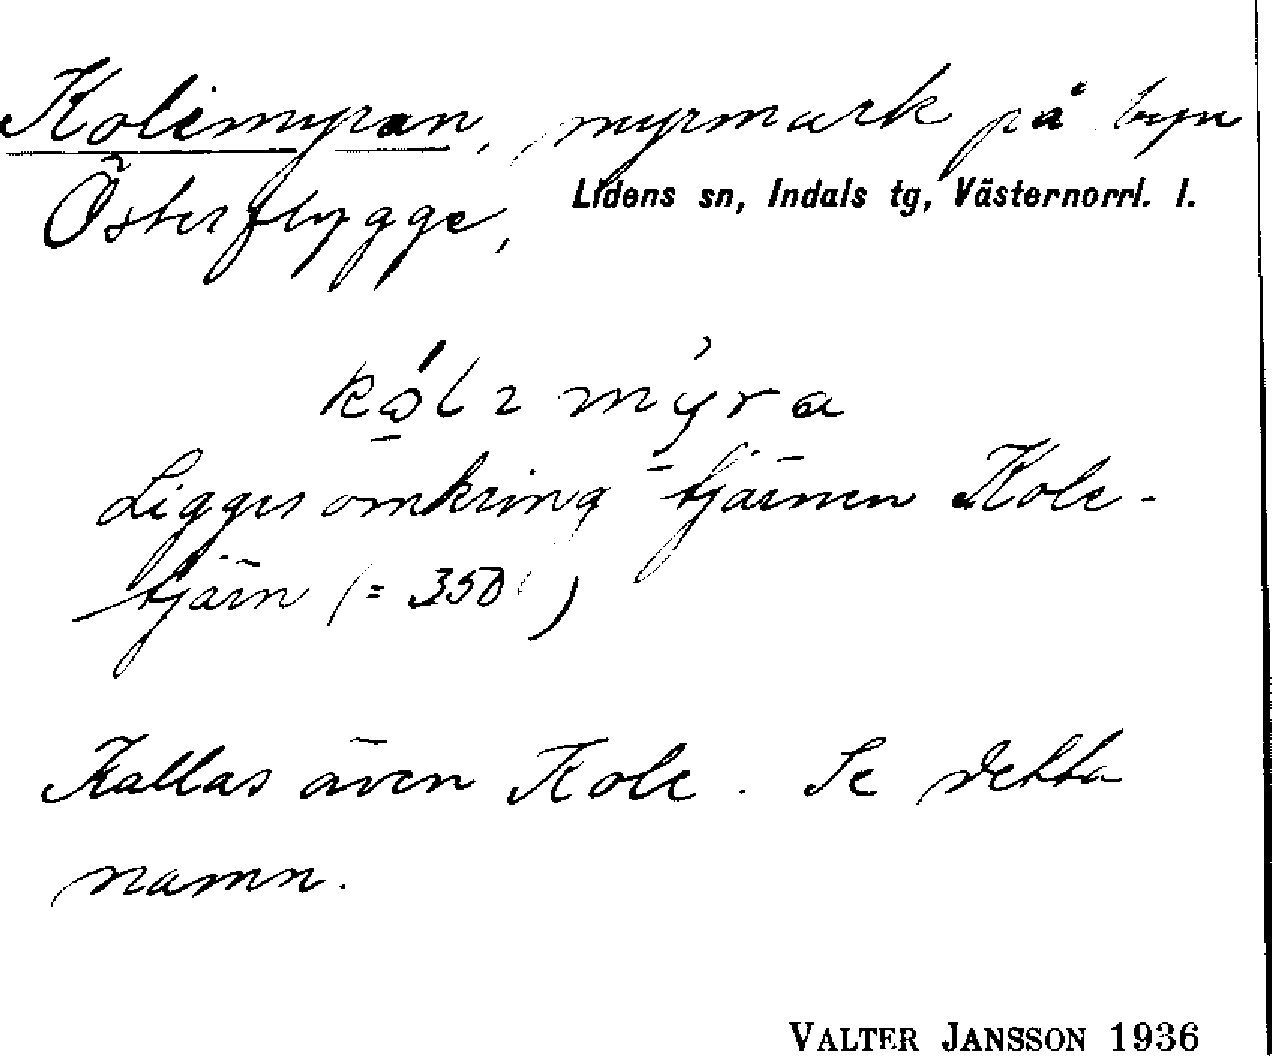 Kolemyran, myrmark på byn
Österflygge, Lidens sn, Indals tg, Västernorrl. l.
Ligger omkring tjärnen Kole-
tjärn (= 350 )
Kallas även Kole. Se detta
namn.
VALTER JANSSON 1936